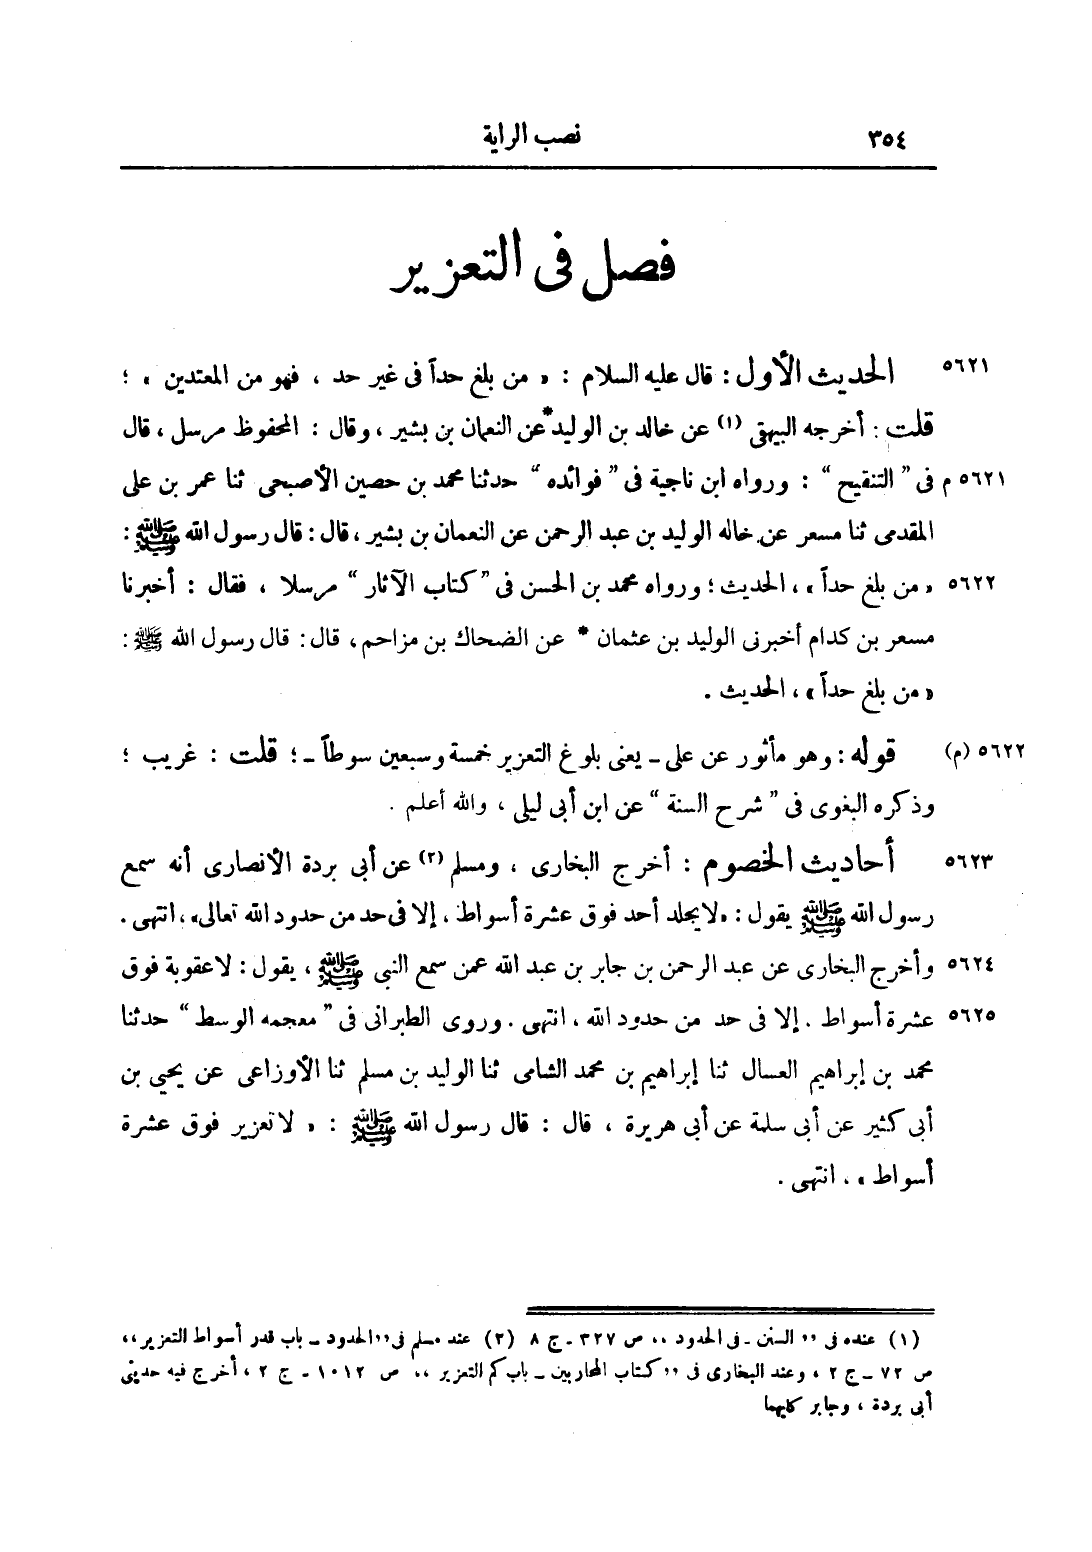 ٣٥٤ نصب الراية
فصل فى التعزير
٥٦٢١ الحديث الأول : قال عليه السلام : « من بلغ حداً فى غير حد ، فهو من المعتدين » ؛
قلت : أخرجه البيهقى (١) عن خالد بن الوليد* عن النعمان بن بشير ، وقال : المحفوظ مرسل ، قال
٥٦٢١ م فى ” التنقيح “ : ورواه ابن ناجية فى ” فوائده “ حدثنا محمد بن حصين الأصبحى ثنا عمر بن على
المقدمى ثنا مسعر عن خاله الوليد بن عبد الرحمن عن النعمان بن بشير ، قال : قال رسول الله ﷺ :
٥٦٢٢ « من بلغ حداً » ، الحديث ؛ ورواه محمد بن الحسن فى ” كتاب الآثار “ مرسلا ، فقال : أخبرنا
مسعر بن كدام أخبرنى الوليد بن عثمان * عن الضحاك بن مزاحم ، قال : قال رسول الله ﷺ :
« من بلغ حداً » ، الحديث .
٥٦٢٢ (م) قوله : وهو مأثور عن على ــ يعنى بلوغ التعزير خمسة وسبعين سوطاً ــ ؛ قلت : غريب ؛
وذكره البغوى فى ” شرح السنة “ عن ابن أبى ليلى ، والله أعلم .
٥٦٢٣ أحاديث الخصوم : أخرج البخارى ، ومسلم (٢) عن أبى بردة الأنصارى أنه سمع
رسول الله ﷺ يقول : «لا يجلد أحد فوق عشرة أسواط ، إلا فى حد من حدود الله تعالى» ، انتهى .
٥٦٢٤ وأخرج البخارى عن عبد الرحمن بن جابر بن عبد الله عمن سمع النبى ﷺ ، يقول : لا عقوبة فوق
٥٦٢٥ عشرة أسواط . إلا فى حد من حدود الله ، انتهى . وروى الطبرانى فى ” معجمه الوسط “ حدثنا
محمد بن إبراهيم العسال ثنا إبراهيم بن محمد الشامى ثنا الوليد بن مسلم ثنا الأوزاعى عن يحيى بن
أبى كثير عن أبى سلمة عن أبى هريرة ، قال : قال رسول الله ﷺ : « لا تعزير فوق عشرة
أسواط » ، انتهى .
(١) عنده فى ,, السنن ـ فى الحدود ،، ص ٣٢٧ ـ ج ٨ (٢) عند مسلم فى ,,الحدود ــ باب قدر أسواط التعزير،،
ص ٧٢ ــ ج ٢ ، وعند البخارى فى ,, كتاب المحاربين ــ باب كم التعزير ،، ص ١٠١٢ ـ ج ٢ ، أخرج فيه حديثى
أبى بردة ، وجابر كليهما